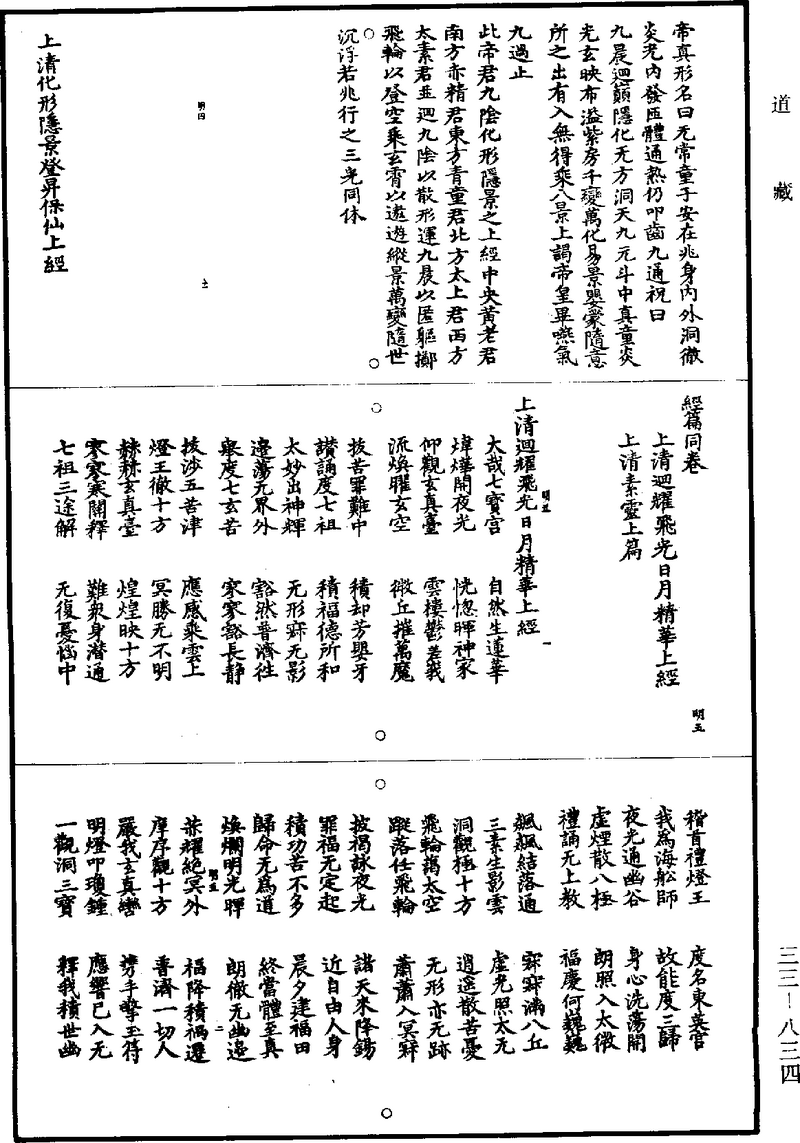 道藏
帝真形名曰无常童子安在兆身內外洞徹
炎光內發匝體通熱仍叩齒九通祝曰
九晨迴巔隱化无方洞天九元斗中真童炎
光玄映布溢紫房千變萬化易景嬰蒙隨意
所之出有入無得乘八景上謁帝皇畢嚥氣
九過止
此帝君九陰化形隱景之上經中央黃老君
南方赤精君東方青童君北方太上君西方
太素君並迴九陰以散形運九晨以匿軀擲
飛輪以登空乘玄霄以遨遊縱景萬變隨世
沉浮若兆行之三光同休
明四
上清化形隱景登昇保仙上經
經篇同卷 明五
上清迴耀飛光日月精華上經
上清素靈上篇
明五 一
上清迴耀飛光日月精華上經
大哉七寶宮 自然生蓮華
煒燁開夜光 恍惚暉神家
仰觀玄真臺 雲樓鬱嵳峩
流煥曜玄空 微丘摧萬魔
拔苦罪難中 積却芳嬰牙
讃誦度七祖 積福德所和
太妙出神輝 无形寂无影
邉蕩无界外 豁然普濟往
舉度七玄苦 寥寥豁長静
拔涉五苦津 應感乘雲上
燈王徹十方 冥勝无不明
赫赫玄真臺 煌煌映十方
寥寥寒關釋 難衆身潜通
七祖三途解 无復憂惱中
稽首禮燈王 度名東英宮
我為海舩師 故能度三歸
夜光通幽谷 身心洗蕩開
虛煙散八極 朗照入太微
禮誦无上教 福慶何巍巍
飆飆結落通 寂寂滿八丘
三素生影雲 虛光照太无
洞觀極十方 逍遥散苦憂
飛輪擲太空 无形亦无跡
蹤落任飛輪 蕭蕭入冥寂
披褐詠夜光 諸天來降錫
罪福无定起 近自由人身
積功苦不多 晨夕建福田
歸命无為道 終當體至真
煥爛明光暉 朗徹无幽邉
明五 二
榮耀絕冥外 福降積禍遷
摩序觀十方 普濟一切人
嚴我玄真轡 勞手擊玉符
明燈叩瓊鍾 應響已入无
一觀洞三寶 釋我積世幽
三三—八三四